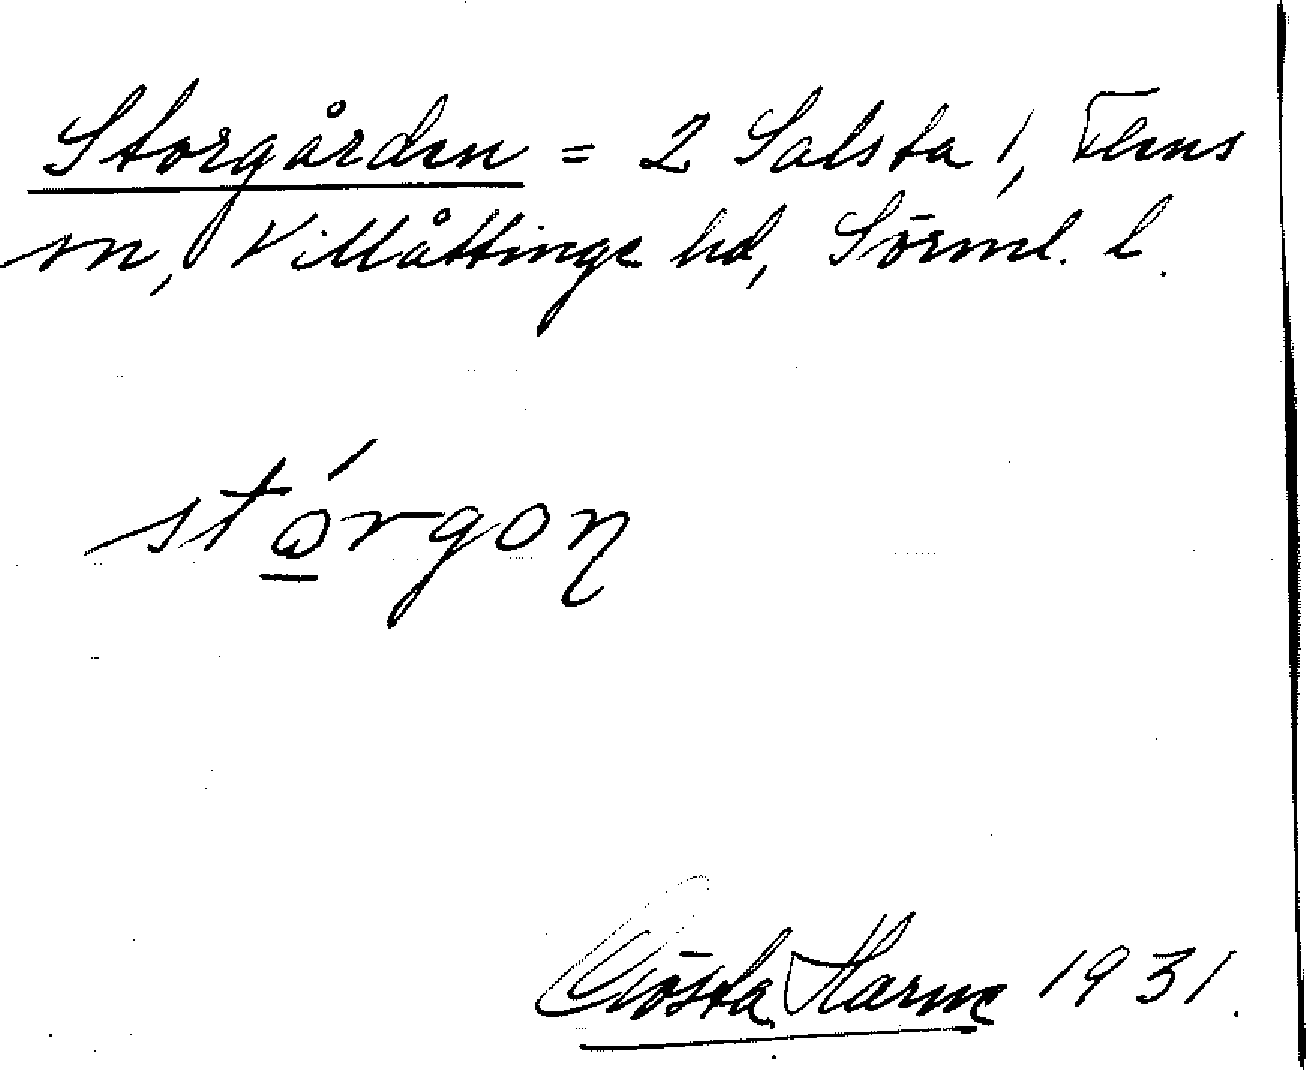 Storgården = 2 Salsta 1, Flens
sn, Villåttinge hd, Sörml. l.
stórgoŋ
Gösta Harne 1931.